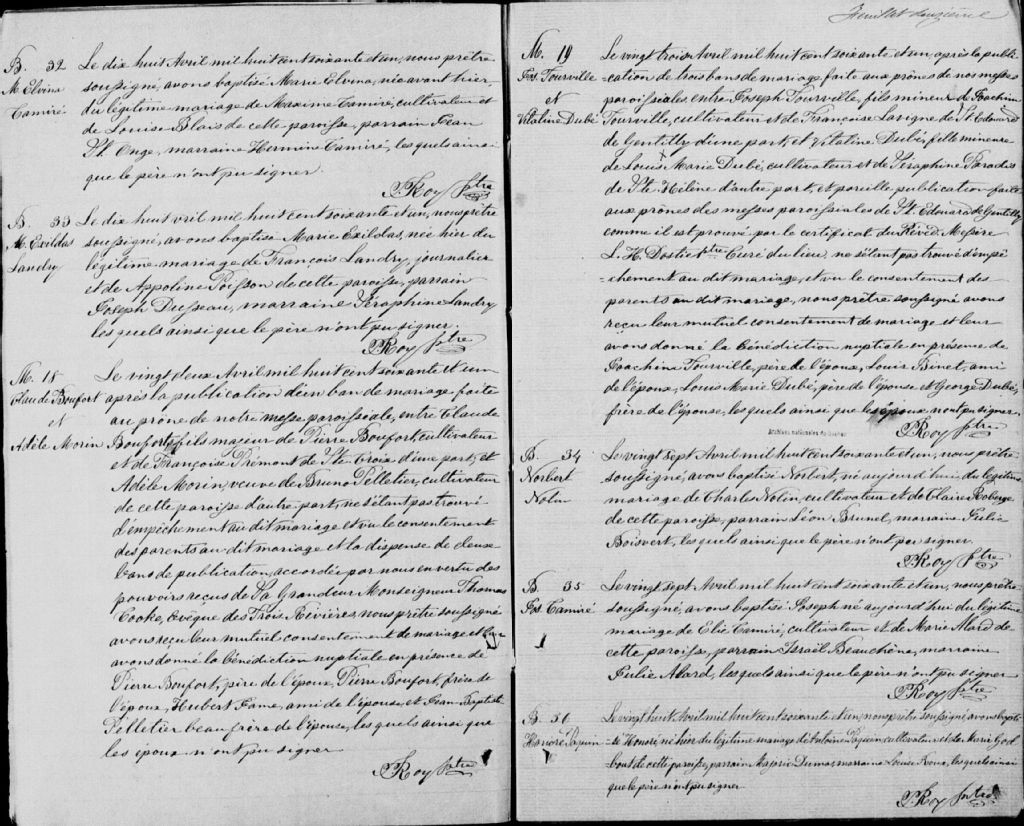 B. 32
M. Elvina
Camiré
Le dix huit Avril mil huit cent soixante et un, nous prêtre
soussigné, avons baptisé Marie Elvina, née avant hier,
du légitime mariage de Maxime Camiré, cultivateur et
de Louise Blais de cette paroisse, parrain Jean
St. Onge, marraine Hermine Camiré, les quels ainsi
que le père n'ont pu signer.
P. Roy Ptre
B. 33
M. Exildas
Landry
Le dix huit vril mil huit cent soixante et un, nous prêtre
soussigné, avons baptisé Marie Exildas, née hier du
légitime mariage de François Landry, journalier
et de Appoline Poisson de cette paroisse, parrain
Joseph Dusseau, marraine Séraphine Landry
les quels ainsi que le père n'ont pu signer.
P. Roy Ptre
M. 18
Claude Boufort
et
Adèle Morin
Le vingt deux Avril mil huit cent soixante et un
après la publication d'un ban de mariage faite
au prône de notre messe paroissiale, entre Claude
Boufort, fils majeur de Pierre Boufort, cultivateur
et de Françoise Prémont de Ste. Croix d'une part, et
Adèle Morin, veuve de Bruno Pelletier, cultivateur
de cette paroisse d'autre part, ne s'étant pas trouvé
d'empêchement au dit mariage et vu le consentement
des parents au dit mariage et la dispense de deux
bans de publication, accordée par nous en vertu des
pouvoirs reçus de Sa Grandeur Monseigneur Thomas
Cooke, évêque des Trois Rivières, nous prêtre soussigné
avons reçu leur mutuel consentement de mariage et leur
avons donné la bénédiction nuptiale en présence de
Pierre Boufort, père de l'époux, Pierre Boufort, frère de
l'époux, Hubert Fame, ami de l'épouse, et Jean Baptiste
Pelletier beau frère de l'épouse, les quels ainsi que
les époux n'ont pu signer
P. Roy Ptre
Feuillet douzième
M. 19
Jos. Tourville
et
Vitaline Dubé
Le vingt trois Avril mil huit cent soixante et un, après la publi-
cation de trois bans de mariage faite aux prônes de nos messes
paroissiales, entre Joseph Tourville, fils mineur de Joachim
Tourville, cultivateur et de Françoise Lavigne de St. Edouard
de Gentilly d'une part, et Vitaline Dubé, fille mineure
de Louis Marie Dubé, cultivateur et de Séraphine Paradis
de Ste. Hélène d'autre part, et pareille publication faite
aux prônes des messes paroissiales de St. Edouard de Gentilly
comme il est prouvé par le certificat du Révéd Messire
L. H. Dostie ptre Curé du lieu, ne s'étant pas trouvé d'empê-
chement au dit mariage, et vu le consentement des
parents au dit mariage, nous prêtre soussigné avons
reçu leur mutuel consentement de mariage et leur
avons donné la bénédiction nuptiale en présence de
Joachim Tourville, père de l'époux, Louis Binet, ami
de l'époux, Louis Marie Dubé, père de l'épouse et George Dubé,
frère de l'épouse, les quels ainsi que les époux n'ont pu signer.
P. Roy Ptre
Archives nationales du Québec
B. 34
Norbert
Nolin
Le vingt sept Avril mil huit cent soixante et un, nous prêtre
soussigné, avons baptisé Norbert, né aujourd'hui, du légitime
mariage de Charles Nolin, cultivateur et de Claire Roberge
de cette paroisse, parrain Léon Brunel, marraine Julie
Boisvert, les quels ainsi que le père n'ont pu signer.
P. Roy Ptre
B. 35
Jos. Camiré
Le vingt sept Avril mil huit cent soixante et un, nous prêtre
soussigné, avons baptisé Joseph né aujourd'hui du légitime
mariage de Elie Camiré, cultivateur et de Marie Alard de
cette paroisse, parrain Israël Beauchêne, marraine
Julie Alard, les quels ainsi que le père n'ont pu signer
P. Roy Ptre
B. 36
Honoré Paquin
Le vingt huit Avril mil huit cent soixante et un, nous prêtre soussigné, avons bapti-
sé Honoré, né hier du légitime mariage de Antoine Paquin cultivateur et de Marie God-
bout de cette paroisse, parrain Majorie Dumas, marraine Louise Roux, les quels ainsi
que le père n'ont pu signer
P. Roy Ptre